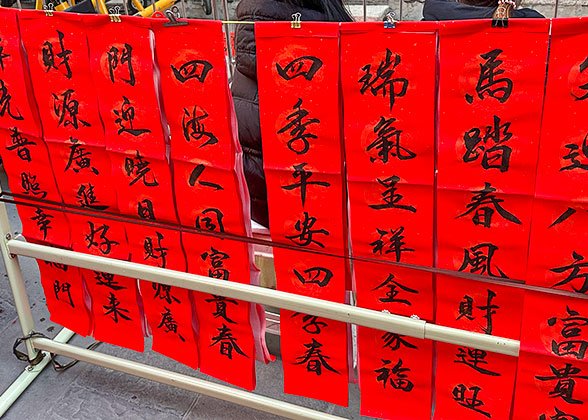 迎八方富貴
馬踏春風財運旺
瑞氣呈祥全家福
四季平安四季春
四海人同富貴春
門迎曉日財源廣
財源廣進好運來
普照幸福門